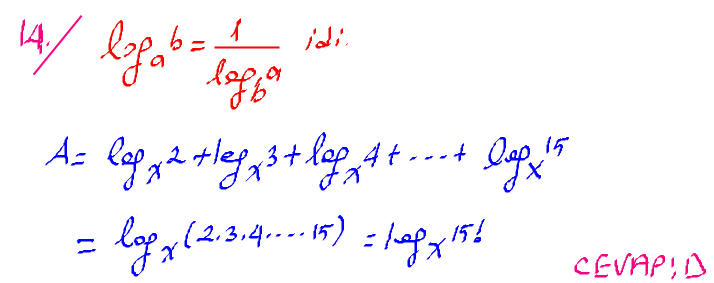 14./ log_a b = 1/log_b a idi.
A = log_x 2 + log_x 3 + log_x 4 + ... + log_x 15
= log_x (2.3.4.... 15) = log_x 15!
CEVAP: D